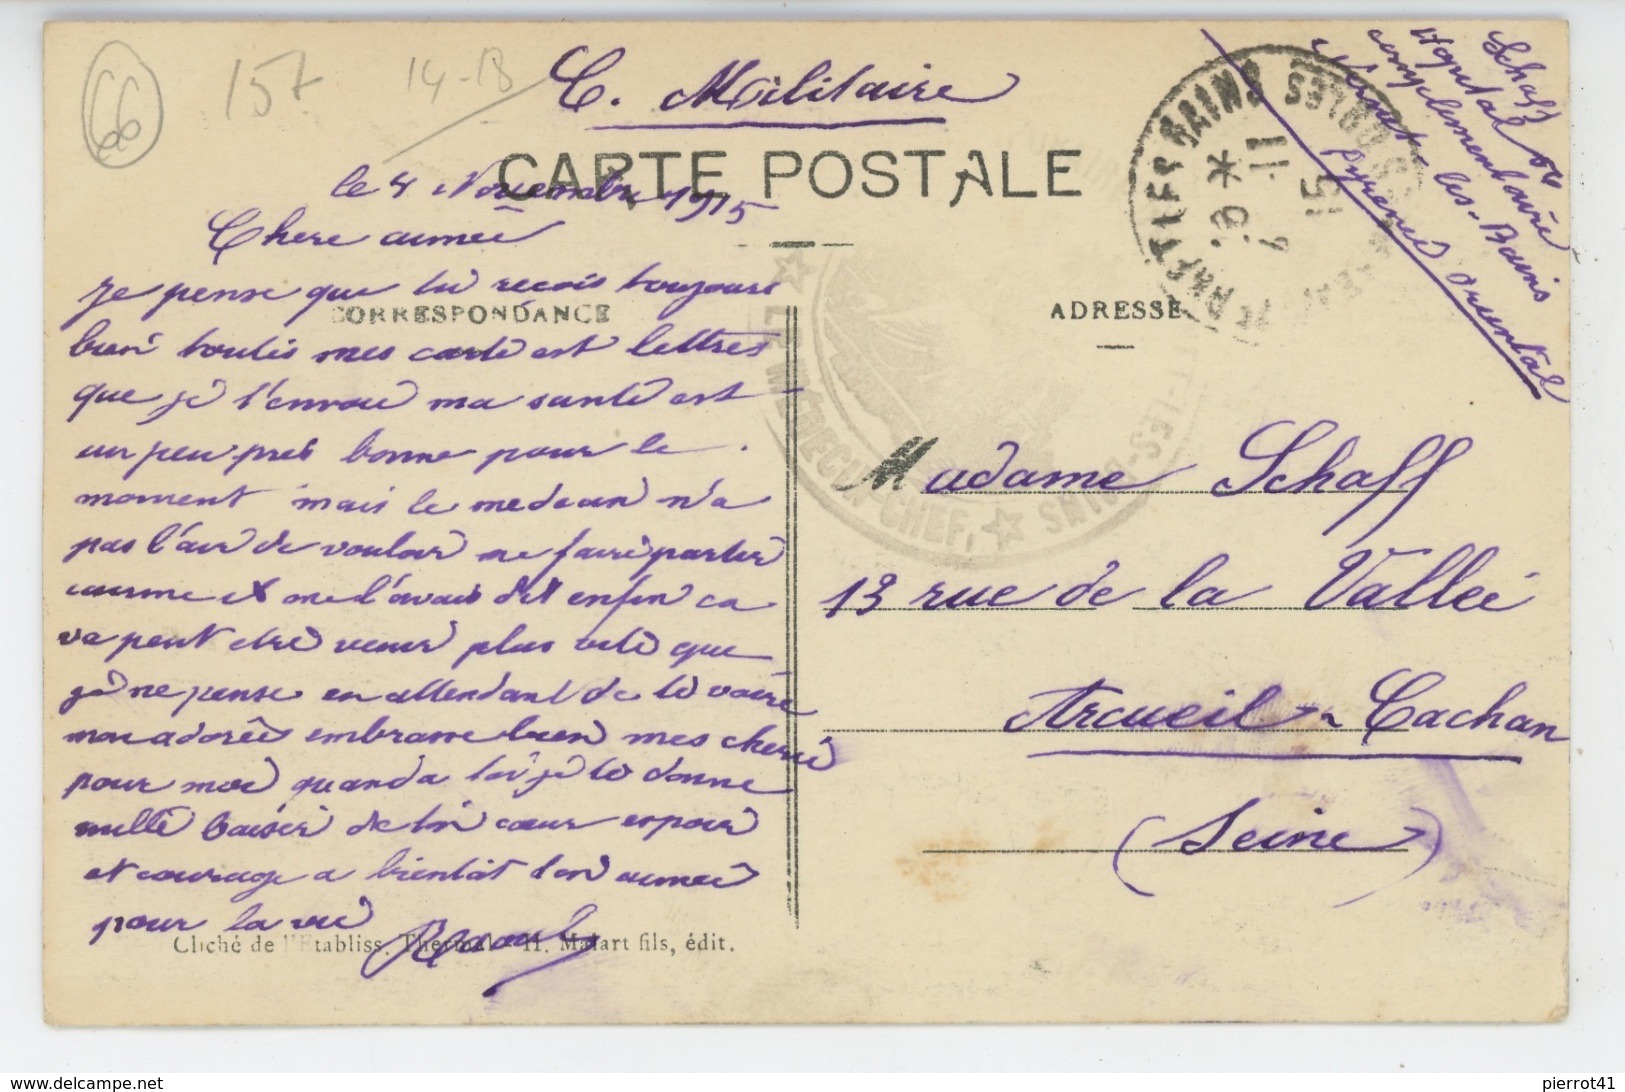 66
157
14-18
C. Militaire
CARTE POSTALE
le 4 Novembre 1915
Chere aimée
je pense que tu recois toujours
CORRESPONDANCE
bien toutes mes carte est lettres
que je t'envoie ma santé est
un peu pres bonne pour le
moment mais le medecin n'a
pas l'air de vouloir me faire partir
comme il me l'avais dit enfin ca
va peut etre venir plus vite que
je ne pense en attendant de te voire
mon adorée embrasse bien mes cheris
pour moi quand a toi je te donne
mille baiser de ton cœur espoir
et courage a bientot ton aimée
pour la vie
Raoul
Cliché de l'Etabliss. Thermal - H. Malart fils, édit.
Schaff
Hopital
complementaire
Vernet les-Bains
Pyreneé oriental
BAINS
* 11
15
LE MÉDECIN CHEF,
T-LES-BAINS
ADRESSE
Madame Schaff
13 rue de la Vallée
Arcueil-Cachan
(Seine)
delcampe.net
pierrot41